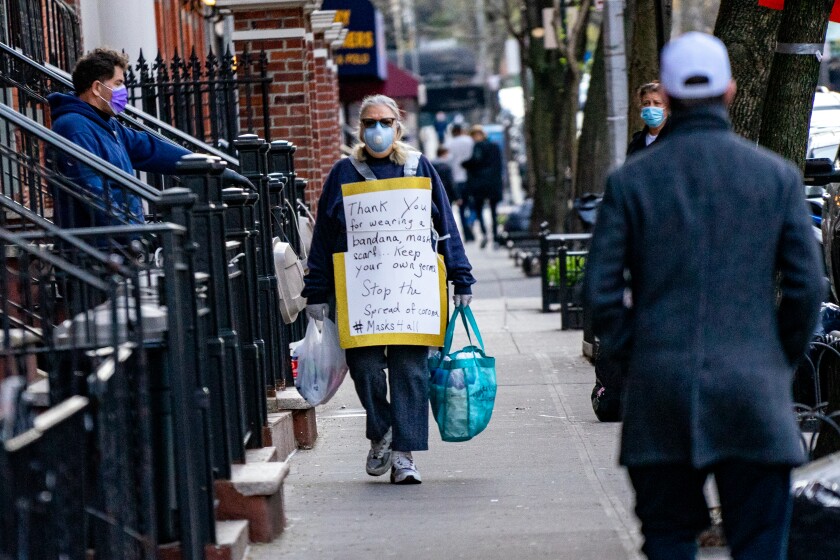 Thank You
for wearing a
bandana, mask
scarf... Keep
your own germs
Stop the
Spread of corona
#Masks4all